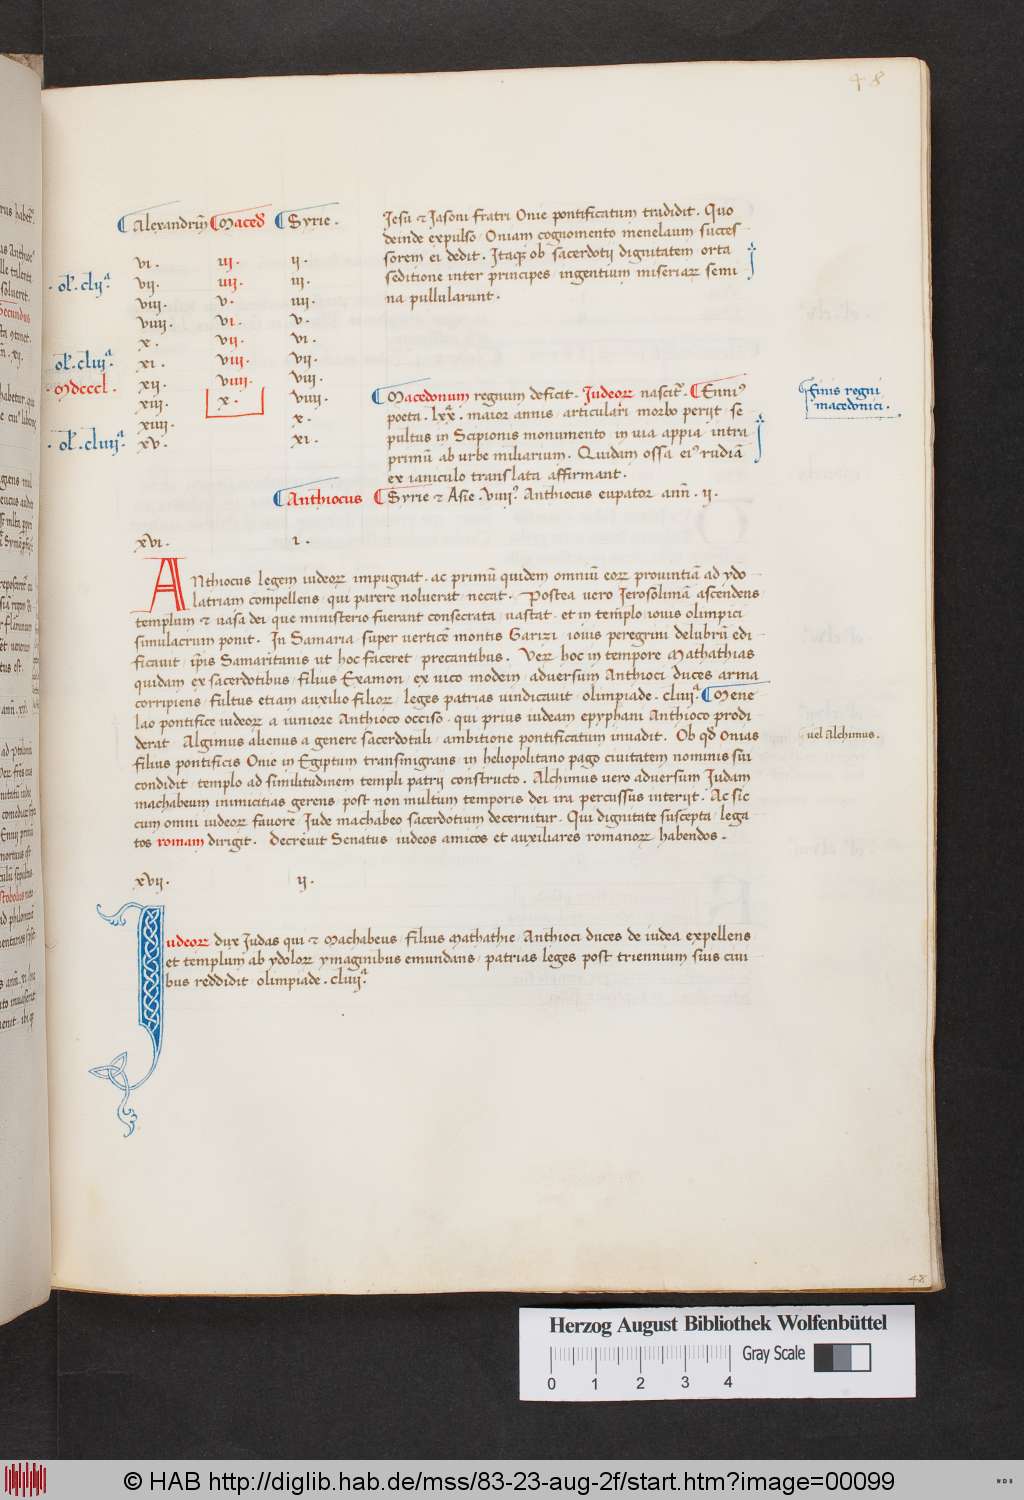 48
Alexandriñ Maced Syrie.
Jesu et Jasoni fratri Onie pontificatum tradidit. Quo
deinde expulso Oniam cognomento menelaum succes
sorem ei dedit. Itaqꝫ ob sacerdotii dignitatem orta
seditione inter principes ingentium miseriaꝝ semi
na pullularunt.
vi. iii. ii.
ol'. clii.a vii. iiii. iii.
viii. v. iiii.
viiii. vi. v.
x. vii. vi.
ol'. cliii.a xi. viii. vii.
Mdcccl. xii. viiii. viii.
xiii. x. viiii.
xiiii. x.
ol'. cliiii.a xv. xi.
Macedonum regnum deficit. Iudeoꝝ nascit.ʳ Enniꝰ
poeta. lxx. maior annis articulari morbo perijt se
pultus in Scipionis monumento in via appia intra
primū ab urbe miliarium. Quidam ossa eiꝰ rudiā
ex ianiculo translata affirmant.
finis regni
macedonici.
Anthiocus Syrie et Asie. viiii.ꝰ Anthiocus eupator ann̄. ii.
xvi. i.
ANthiocus legem iudeoꝝ impugnat. ac primū quidem omniū eoꝝ prouintiā ad ydo
latriam compellens qui parere noluerat necat. Postea vero Ierosolimā ascendens
templum et uasa dei que ministerio fuerant consecrata uastat. et in templo iouis olimpici
simulacrum ponit. In Samaria super uerticē montis Garizi iouis peregrini delubrū edi
ficauit ip̄is Samaritanis ut hoc faceret precantibus. Veꝝ hoc in tempore Mathathias
quidam ex sacerdotibus filius Examon ex uico modein aduersum Anthioci duces arma
corripiens fultus etiam auxilio filioꝝ leges patrias uindicauit olimpiade. cliiii.a Mene
lao pontifice iudeoꝝ a iuniore Anthioco occiso. qui prius iudeam epyphani Anthioco prodi
derat Algimus alienus a genere sacerdotali ambitione pontificatum inuadit. Ob qd Onias
filius pontificis Onie in Egiptum transmigrans in heliopolitano pago ciuitatem nominis sui
condidit templo ad similitudinem templi patrij constructo. Alchimus vero aduersum Judam
machabeum inimicitias gerens post non multum temporis dei ira percussus interijt. Ac sic
cum omni iudeoꝝ fauore Jude machabeo sacerdotium decernitur. Qui dignitate suscepta lega
tos romam dirigit. decreuit Senatus iudeos amicos et auxiliares romanoꝝ habendos.
uel Alchimus.
xvii. ii.
Iudeoꝝ dux Judas qui et Machabeus filius Mathathie Anthioci duces de iudea expellens
et templum ab ydoloꝝ ymaginibus emundans patrias leges post triennium suis ciui
bus reddidit olimpiade. cliiii.a
48
Herzog August Bibliothek Wolfenbüttel
Gray Scale
0 1 2 3 4
© HAB http://diglib.hab.de/mss/83-23-aug-2f/start.htm?image=00099